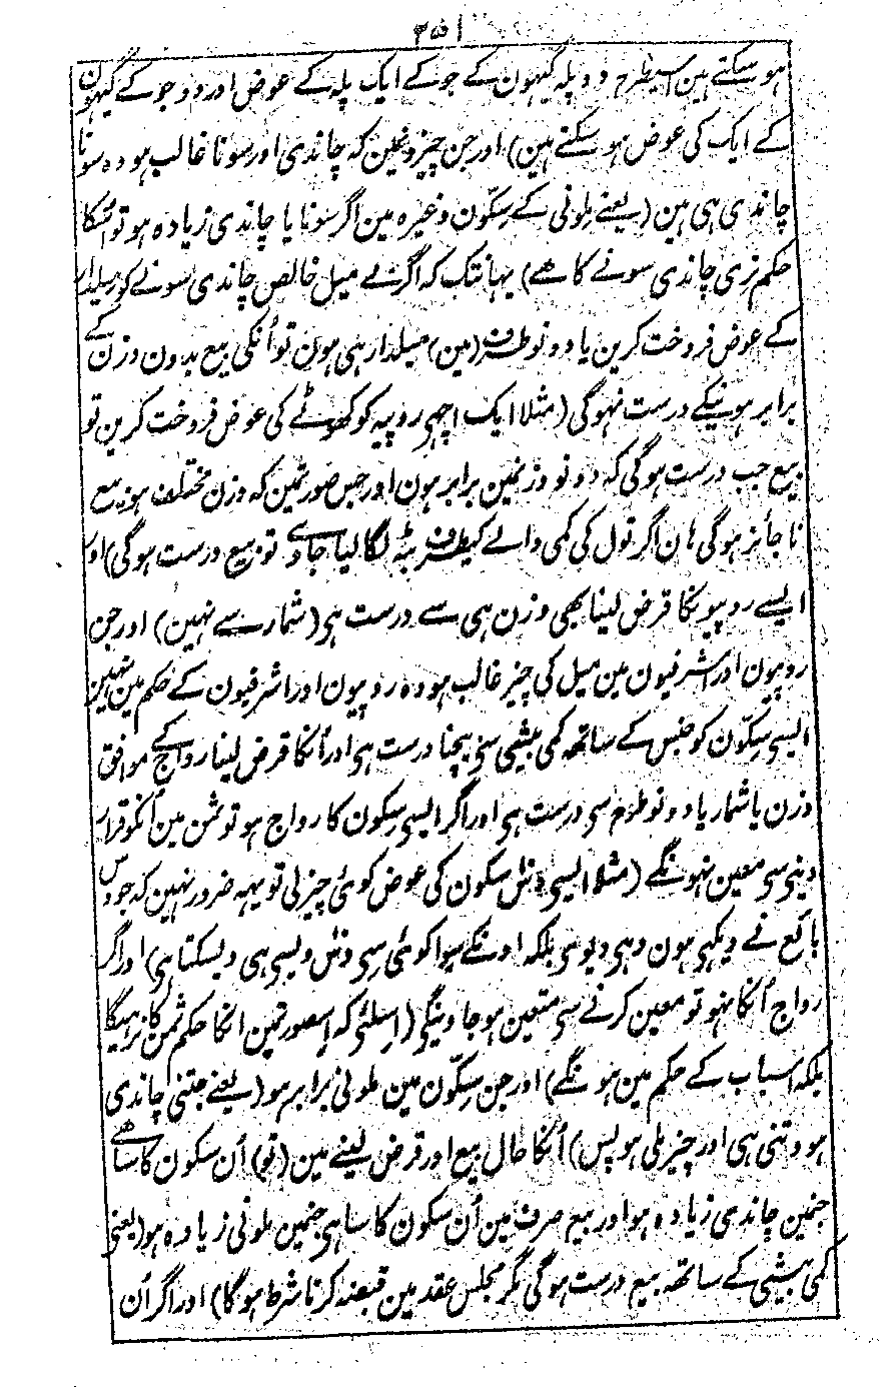 ۳۵۱
ہو سکتے ہین اسیطرح دو پلہ گیہون کے جو کے ایک پلہ کے عوض اور دو جو کے گیہون
کے ایک کی عوض ہو سکتے ہین) اور جن چیزونمین کہ چاندی اور سونا غالب ہو وہ سونا
چاندی ہی ہین (یعنے ملونی کے سکّون وغیرہ مین اگر سونا یا چاندی زیادہ ہو تو اُسکا
حکم نری چاندی سونے کا ھے) یہانتک کہ اگر بے میل خالص چاندی سونے کو میلدار
کے عوض فروخت کرین یا دونو طرف (مین) میلدار ہی ہون تو اُنکی بیع بدون وزن کے
برابر ہونیکے درست نہوگی (مثلا ایک اچھی روپیہ کو کھوٹے کی عوض فروخت کرین تو
بیع جب درست ہوگی کہ دونو وزنمین برابر ہون اور جس صورتمین کہ وزن مختلف ہو بیع
ناجائز ہوگی ہان اگر تول کی کمی والے کیطرف بٹہ لگا لیا جاوے تو بیع درست ہوگی) اور
ایسے روپیونکا قرض لینا بھی وزن ہی سے درست ہی (شمار سے نہین) اور جن
روپیون اور اشرفیون مین میل کی چیز غالب ہو وہ روپیون اور اشرفیون کے حکم مین نہین
ایسی سکّون کو جنس کے ساتھ کمی بیشی سی بیچنا درست ہی اور اُنکا قرض لینا رواج کے موافق
وزن یا شمار یا دونو طرح سی درست ہی اور اگر ایسی سکون کا رواج ہو تو ثمن مین اُنکو قرار
دینی سی معین نہونگے (مثلا ایسی دس سکون کی عوض کوئی چیز لی تو یہہ ضرور نہین کہ جو دس
بائع نے دیکھی ہون وہی دیوی بلکہ اونکے سوا کوئی سی دس ویسی ہی دیسکتا ہی) اور اگر
رواج اُنکا نہو تو معین کرنے سی متعین ہو جاوینگی (اسلئی کہ اسصورتمین انکا حکم ثمن کا نرہیگا
بلکہ اسباب کے حکم مین ہونگے) اور جن سکّون مین ملونی برابر ہو (یعنے جتنی چاندی
ہو وتنی ہی اور چیز ملی ہو پس) اُنکا حال بیع اور قرض لینے مین (تو) اُن سکون کا سا ھے
جنمین چاندی زیادہ ہو اور بیع صرف مین اُن سکون کا سا ہی جنمین ملونی زیادہ ہو (یعنی
کمی بیشی کے ساتھ بیع درست ہوگی مگر مجلس عقد مین قبضہ کرنا شرط ہوگا) اور اگر اُن